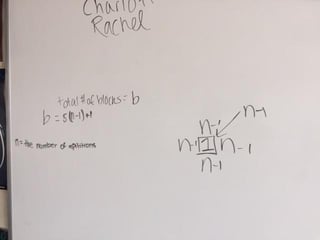 Rachel
total # of blocks = b
b = 5(n-1)+1
n = the number of
n-1
n-1
n-1 1 n-1
n-1